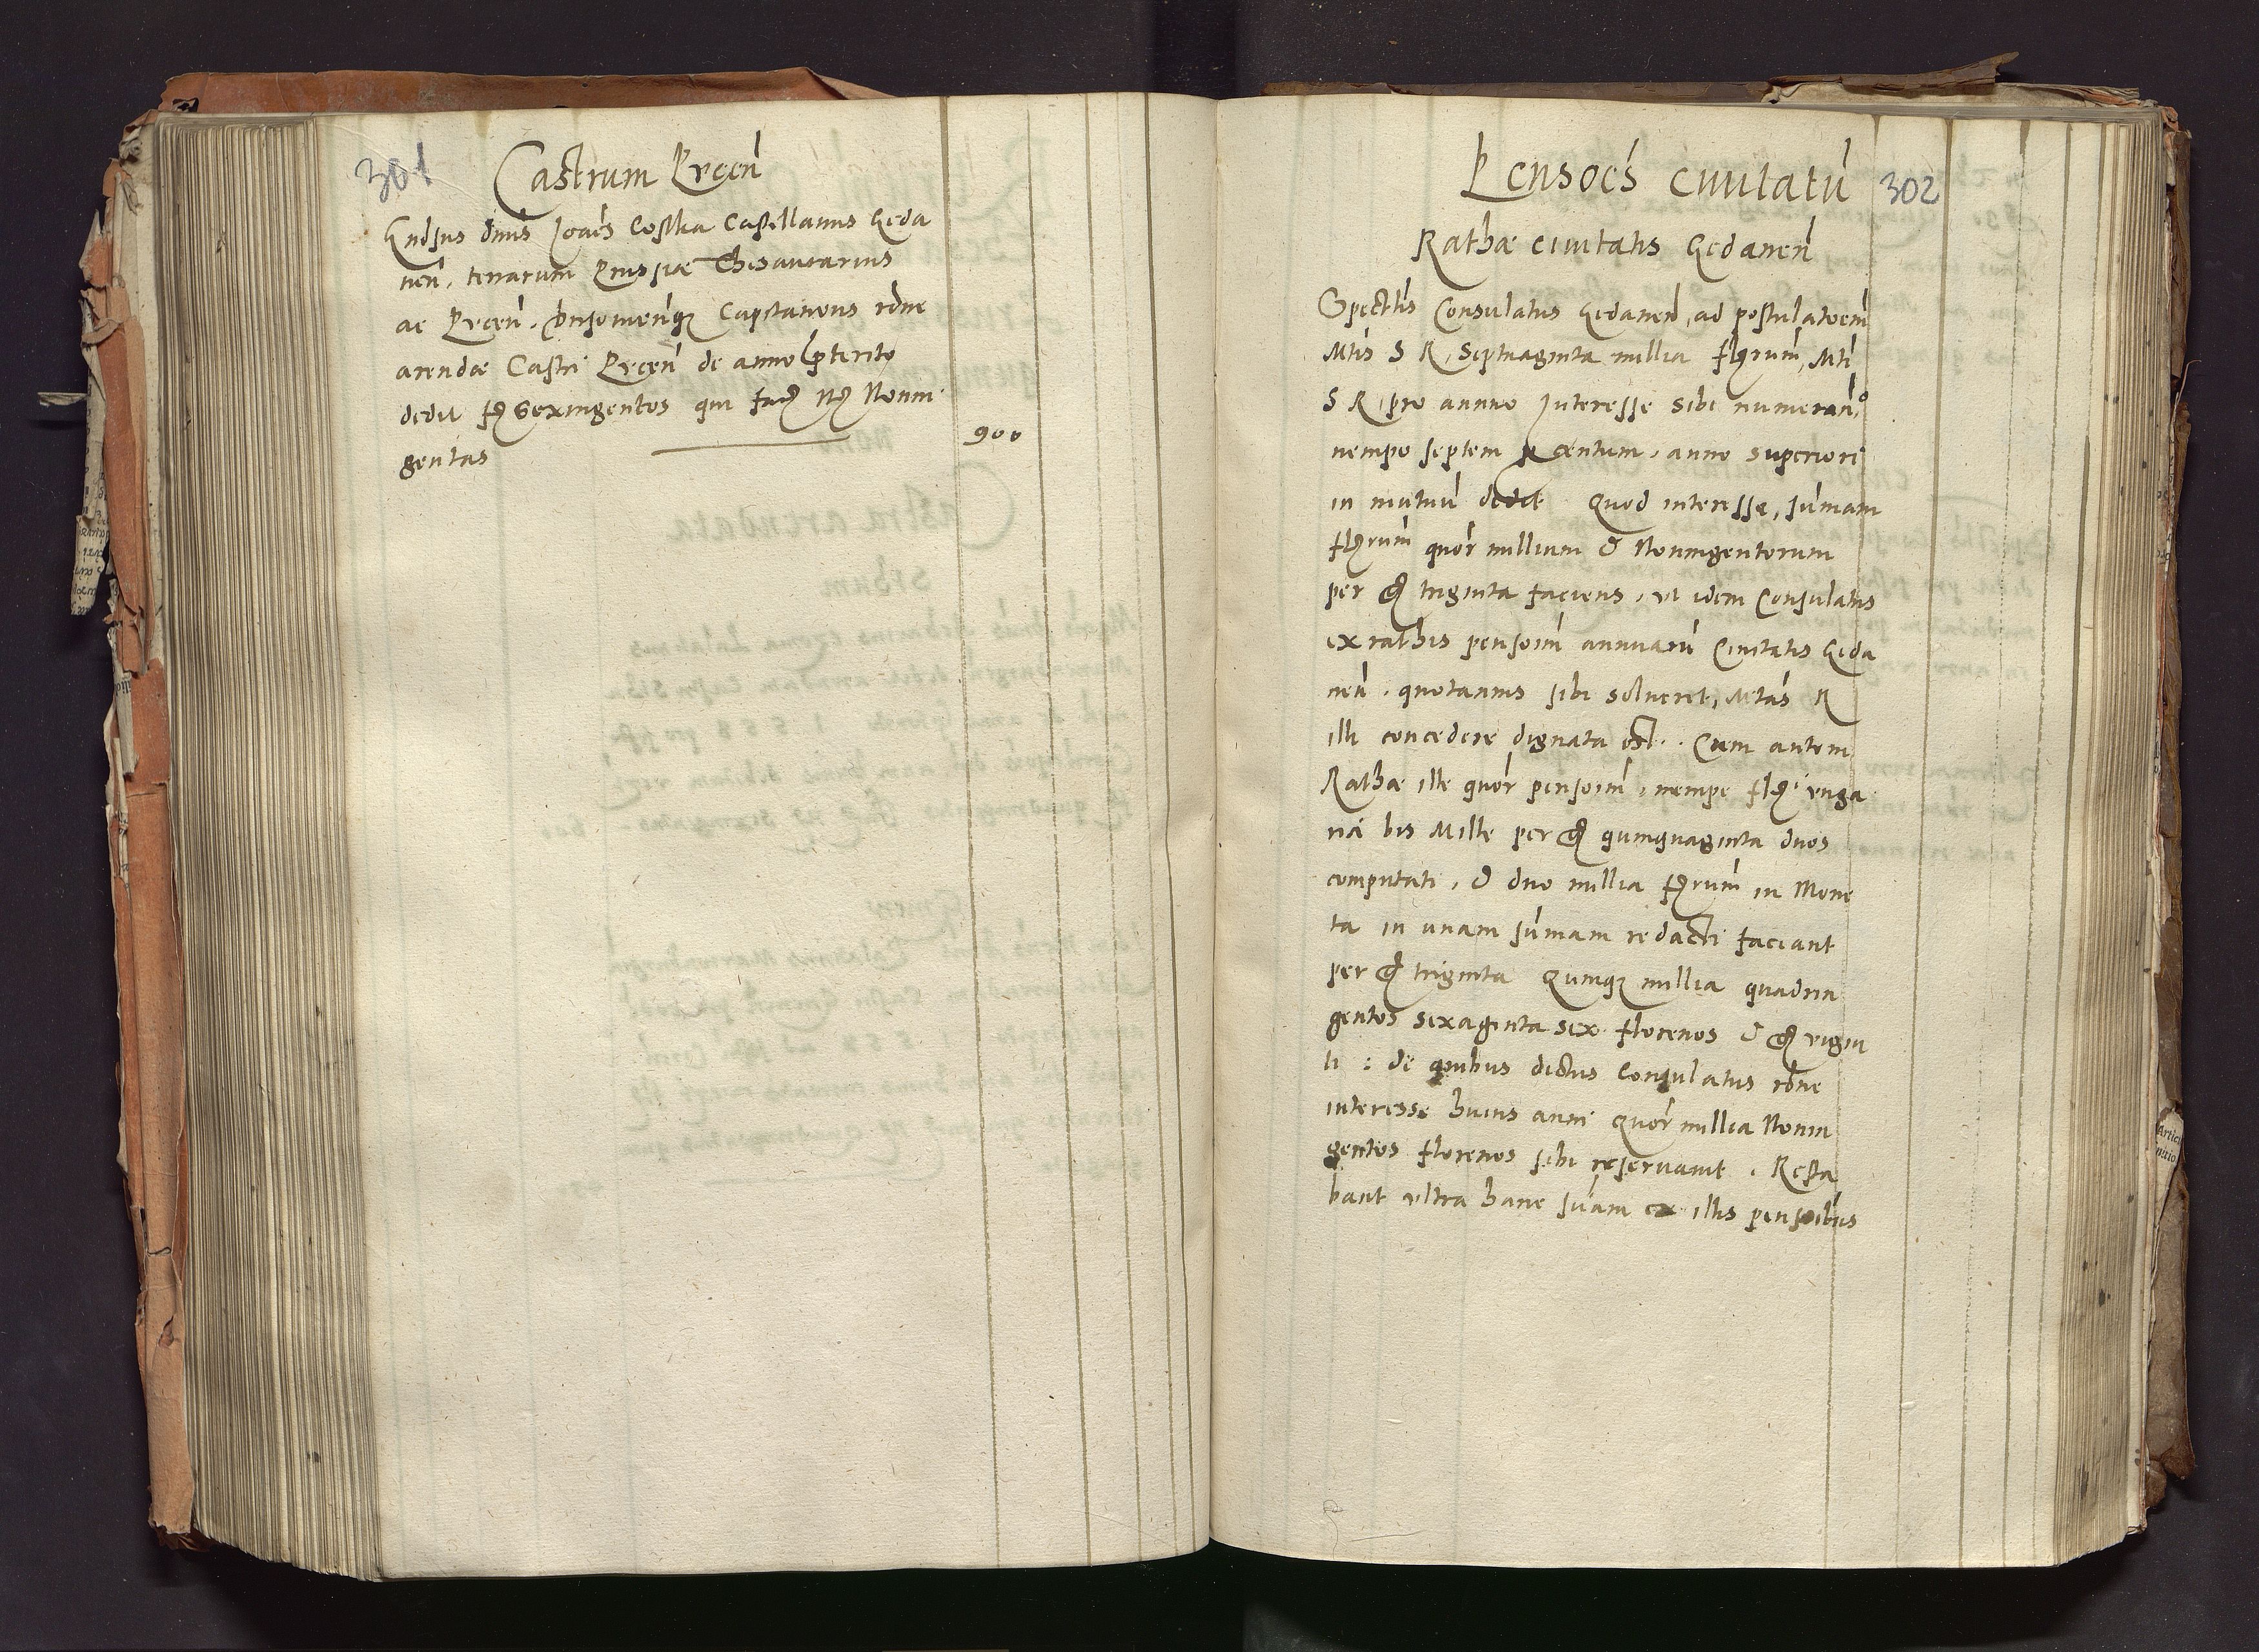 301
Castrum Pucen̄
Gn̄dsus dn̄us Joan̄es Costka Castellanus Geda
nen̄. terrarum Prussiae Thesaurarius
ac Pucen̄. que Capitaneus rōne
arendae Castri Pucen̄ de anno p̄terito
dedit fl Sexingentos qui faci Nonin
gentas
900
Pensoēs Civitatū
302
Rathae Civitatis Gedanen̄
Spectīs Consulatus Gedanen̄, ad postulatōem
Mtis S R, Septuaginta millia flrum, Mti
S R, pro annuo Interesse sibi numeran°
nempe septem p centum, anno superiore
in mutuū dedit Quod interesse, sūmam
flrum quor millium & Noningentorum
per gr triginta faciens, ut idem Consulatus
ex rathis pensoim annuarū Civitatis Geda
nen̄. quotannis sibi solueret, Mtas R
illi concedere dignata est. Cum autem
Rathae ille quor pensoim, nempe fl unga
ricā bis Mille per gr quinquaginta duos
computati, & duo millia flrum in Mone
ta in unam sūmam redacti faciant
per gr triginta Quinq millia quadrin
gentos sexaginta sex florenos & gr vigin
ti : de quibus dictus Consulatus rōne
interesse huius anni quor millia Nonin
gentos florenos sibi reservavit. Resta
bant ultra hanc sūam ex illis pensoībus